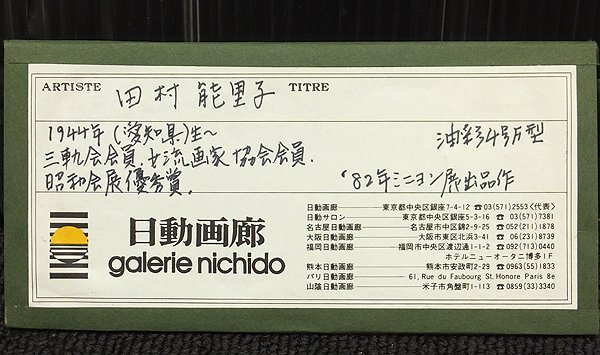 ARTISTE 田村能里子 TITRE
1944年(愛知県)生~ 油彩4号F型
三軌会会員.女流画家協会会員.
昭和会展優秀賞. '82年ミニヨン展出品作
日動画廊
galerie nichido
日動画廊――東京都中央区銀座7-4-12 ☎03(571)2553〈代表〉
日動サロン――東京都中央区銀座5-3-16 ☎03(571)7381
名古屋日動画廊――名古屋市中区錦2-9-25 ☎052(211)1878
大阪日動画廊――大阪市東区北浜3-41 ☎06(231)8739
福岡日動画廊――福岡市中央区渡辺通1-1-2 ☎092(713)0440
ホテルニューオータニ博多1F
熊本日動画廊――熊本市安政町2-29 ☎0963(55)1833
パリ日動画廊――61, Rue du Faubourg St. Honore Paris 8e
山陰日動画廊――米子市角盤町1-113 ☎0859(33)3340